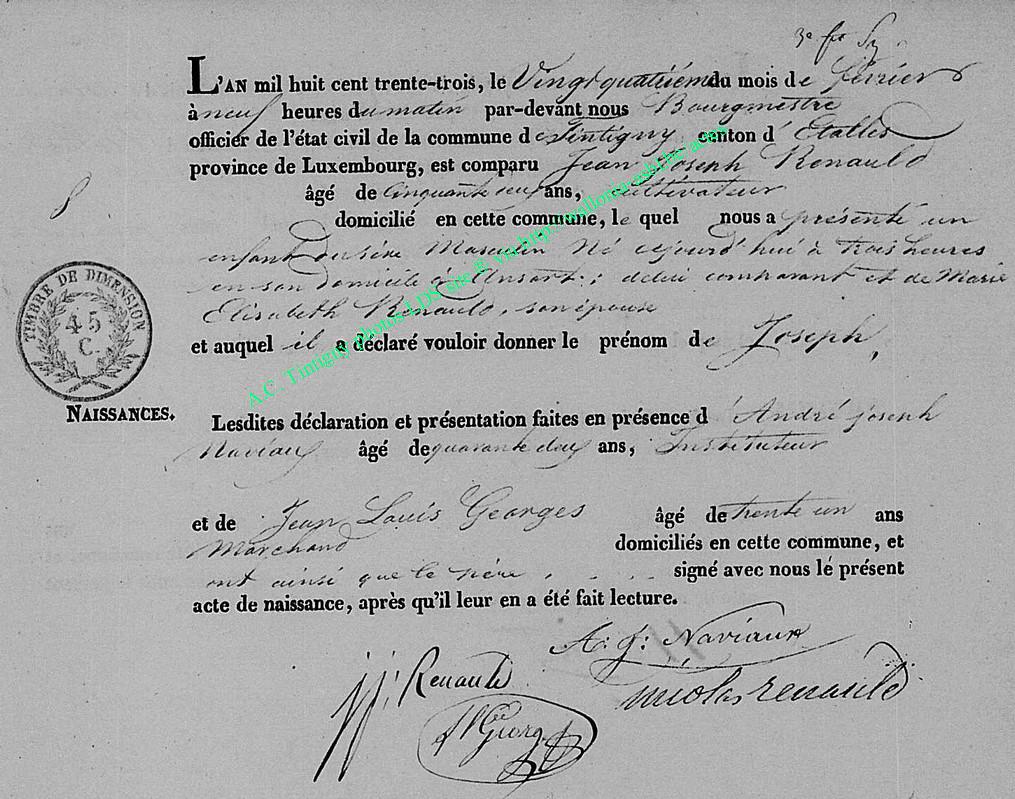 L'AN mil huit cent trente-trois, le Vingt quatrième du mois de février
à neuf heures du matin par-devant nous Bourgmestre
officier de l'état civil de la commune de Tintigny canton d'Etalle
province de Luxembourg, est comparu Jean Joseph Renauld
âgé de Cinquante deux ans, cultivateur
domicilié en cette commune, le quel nous a présenté un
enfant du sexe Masculin Né cejourd'hui à trois heures
en son domicile à Ansart : de lui comparant et de Marie
Elisabeth Renauld, son épouse
et auquel il a déclaré vouloir donner le prénom de Joseph,
TIMBRE DE DIMENSION
45
C.
NAISSANCES.
Lesdites déclaration et présentation faites en présence d'André joseph
Naviaux âgé de quarante deux ans, Instituteur
et de Jean Louis Georges âgé de trente un ans
Marchand domiciliés en cette commune, et
ont ainsi que le père, signé avec nous lé présent
acte de naissance, après qu'il leur en a été fait lecture.
A: j: Naviaux
jj. Renauld
nicolas renauld
Georg
A.C. Tintigny photos LDS, site ® via http: